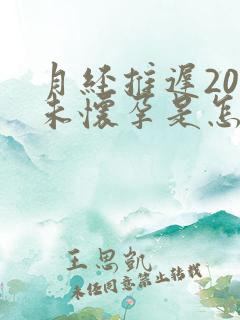 月经推迟20
未怀孕是怎
王思凯
未经同意禁止转载